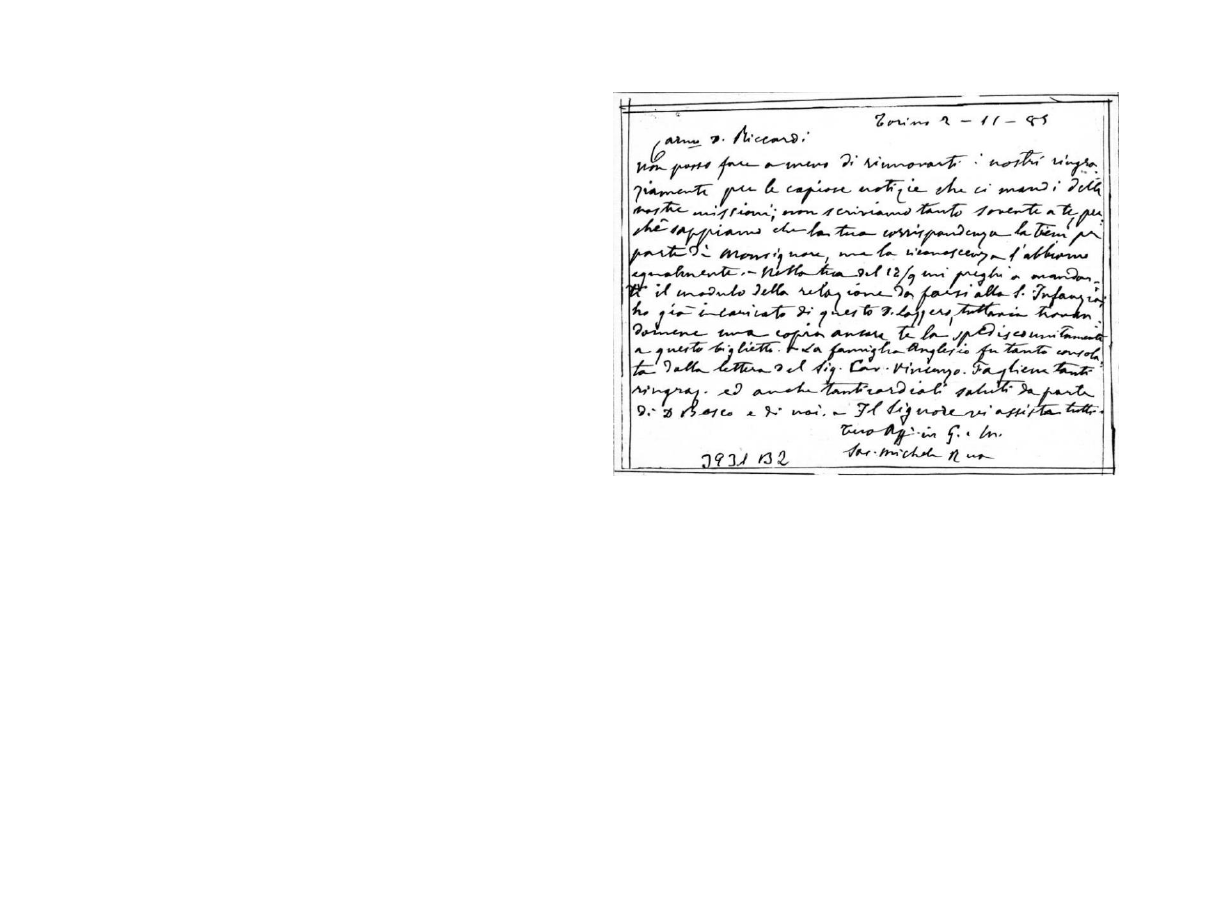 Torino 2 - 11 - 85
Carmo D. Riccardi
Non posso fare a meno di rinnovarti i nostri ringra
ziamente per le copiose notizie che ci mandi delle
nostre missioni; non scriviamo tanto sovente a te, per
chè sappiamo che la tua corrispondenza la tieni per
parte di Monsignore, ma la riconoscenza l'abbiamo
egualmente. - Nella tua del 12/9 mi preghi a mandar-
ti il modulo della relazione da farsi alla S. Infanzia
ho già incaricato di questo D. Lazzero, tuttavia trovan
domene una copia ancora te la spedisco unitamente
a questo biglietto. - La famiglia Anglesio fu tanto consola
ta dalla lettera del Sig. Cav. Vincenzo. Fagliene tanti
ringraz. ed anche tanti cordiali saluti da parte
di D Bosco e di noi. - Il Signore vi assista tutti.
Tuo Aff. in G. e M.
Sac. Michele Rua
3931 B2